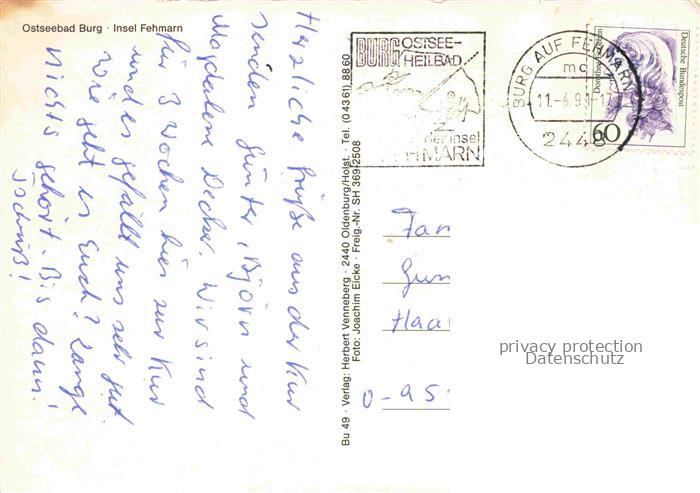 Ostseebad Burg · Insel Fehmarn
Herzliche Grüße aus der Kur
senden Günter, Björn und
Magdalene Decker. Wir sind
für 3 Wochen hier zur Kur
und es gefällt uns sehr gut
Wie geht es Euch? Lange
nichts gehört. Bis dann!
Tschüß!
Bu 49 · Verlag: Herbert Venneberg · 2440 Oldenburg/Holst. · Tel. (04361) 8860
Foto: Joachim Eicke · Freig.-Nr. SH 369-2508
BURG OSTSEE-
HEILBAD
der Insel
FEHMARN
BURG AUF FEHMARN
mc
11.-4.91-1
2448
Deutsche Bundespost
60
Fam
Gün
Haa
O-95
privacy protection
Datenschutz